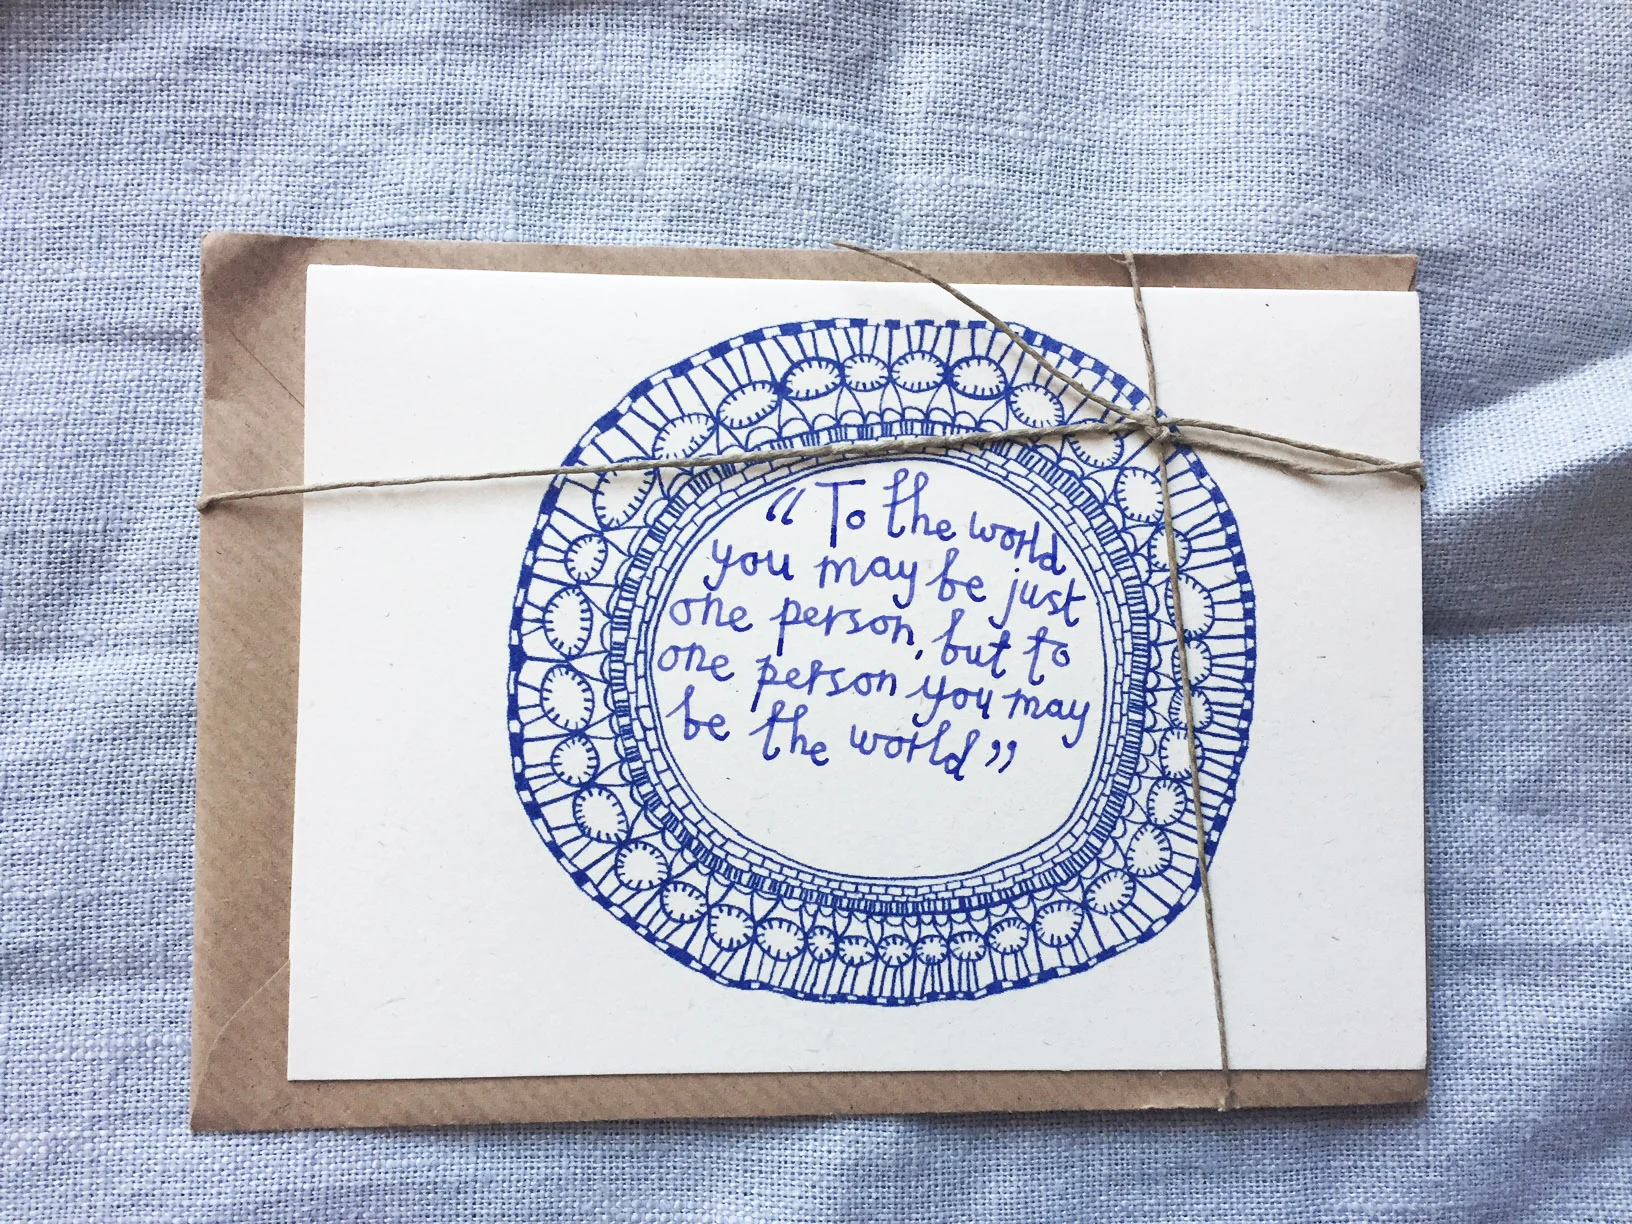 “To the world
you may be just
one person, but to
one person you may
be the world”